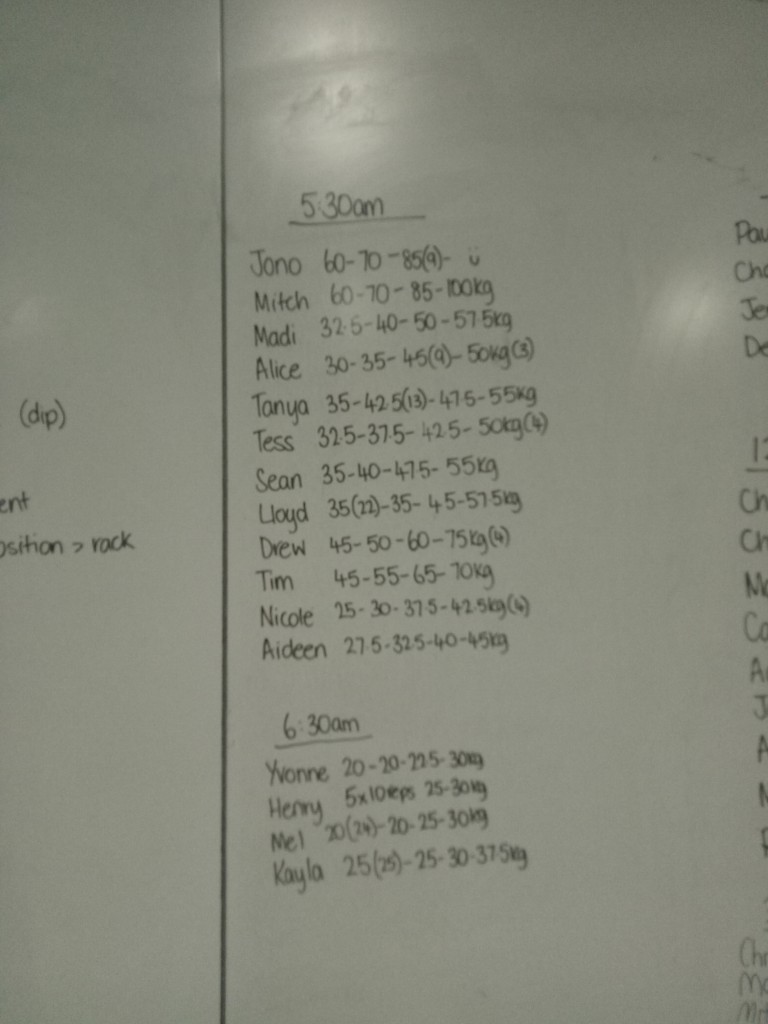 (dip)
ent
osition > rack
5:30am
Jono 60-70-85(9)- ü
Mitch 60-70-85-100kg
Madi 32.5-40-50-57.5kg
Alice 30-35-45(9)-50kg(3)
Tanya 35-42.5(13)-47.5-55kg
Tess 32.5-37.5-42.5-50kg(4)
Sean 35-40-47.5-55kg
Lloyd 35(22)-35-45-57.5kg
Drew 45-50-60-75kg(4)
Tim 45-55-65-70kg
Nicole 25-30-37.5-42.5kg(4)
Aideen 27.5-32.5-40-45kg
6:30am
Yvonne 20-20-22.5-30kg
Henry 5x10reps 25-30kg
Mel 20(24)-20-25-30kg
Kayla 25(25)-25-30-37.5kg
Pau
Cha
Je
De
12
Ch
Ch
Ma
Co
A
J
A
N
Chr
Ma
Mit